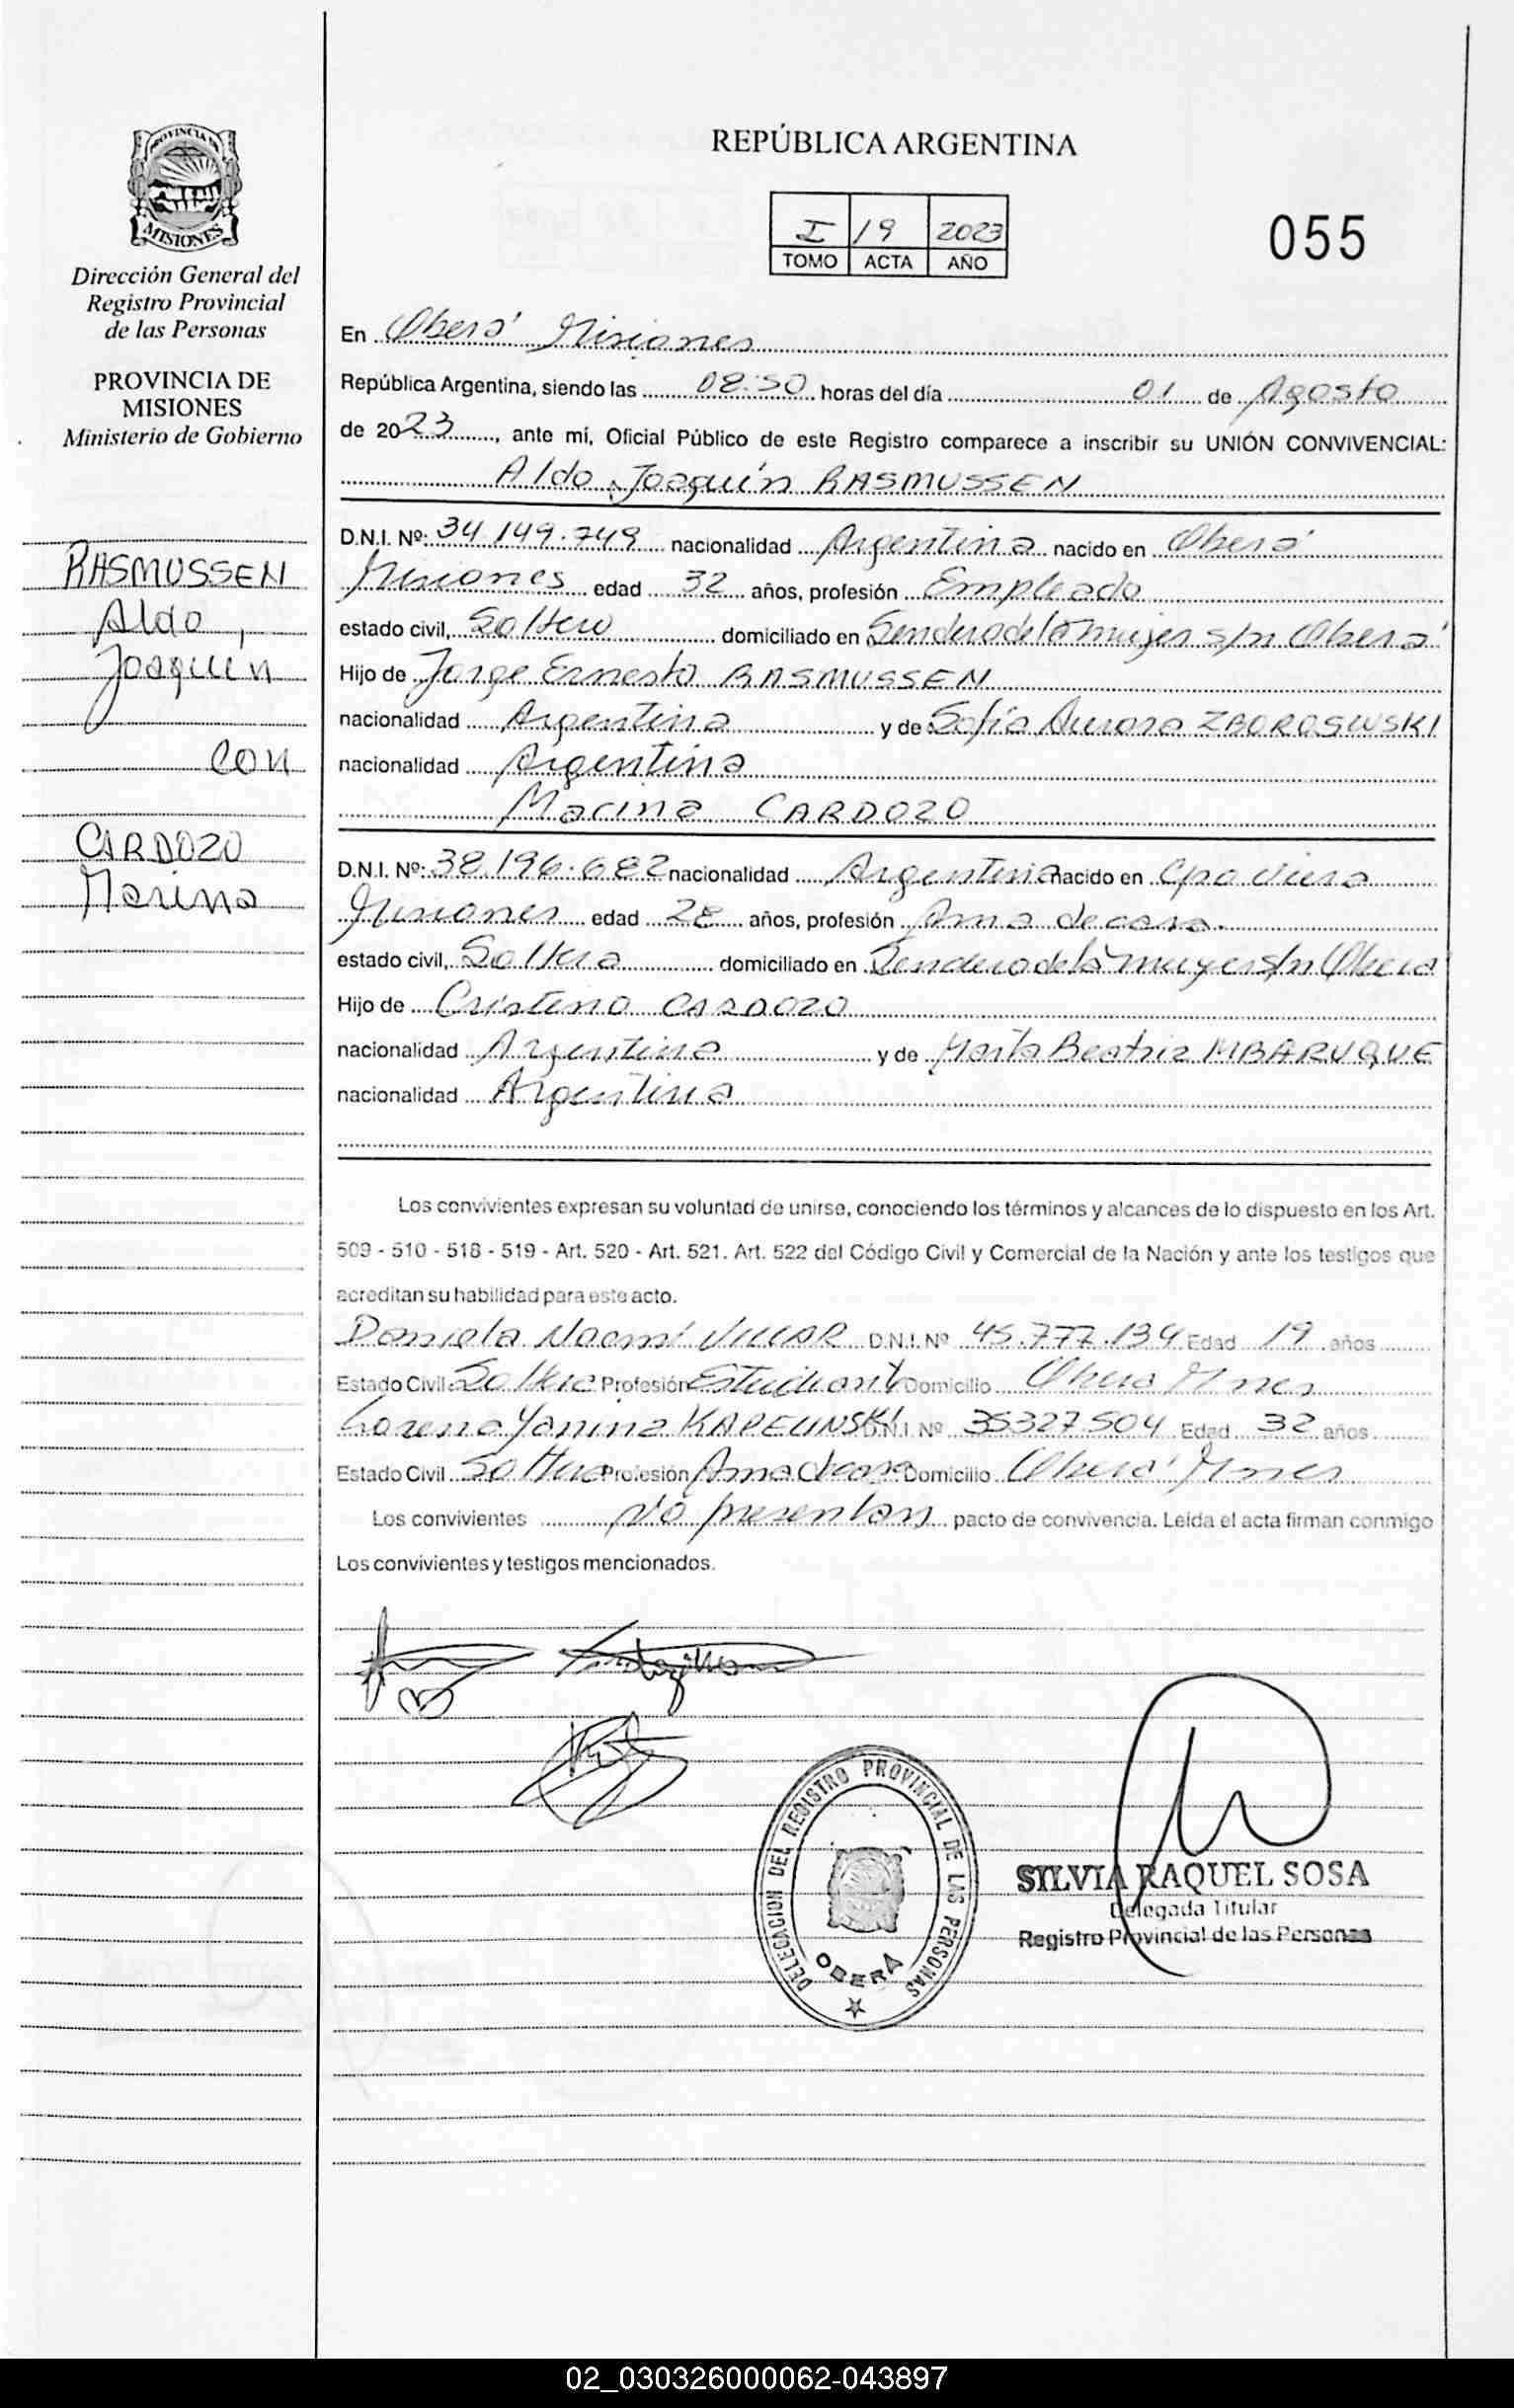 PROVINCIA DE
MISIONES
Dirección General del
Registro Provincial
de las Personas
PROVINCIA DE
MISIONES
Ministerio de Gobierno
RASMUSSEN
Aldo,
Joaquín
con
CARDOZO
Marina
REPÚBLICA ARGENTINA
I 19 2023
TOMO ACTA AÑO
055
En Oberá Misiones
República Argentina, siendo las 08:50 horas del día 01 de Agosto
de 2023, ante mí, Oficial Público de este Registro comparece a inscribir su UNIÓN CONVIVENCIAL:
Aldo Joaquín RASMUSSEN
D.N.I. Nº: 34.149.749 nacionalidad Argentina nacido en Oberá
Misiones edad 32 años, profesión Empleado
estado civil, Soltero domiciliado en Sendero de la mujer s/n Oberá
Hijo de Jorge Ernesto RASMUSSEN
nacionalidad Argentina y de Sofía Aurora ZBOROSWSKI
nacionalidad Argentina
Marina CARDOZO
D.N.I. Nº: 38.196.682 nacionalidad Argentina nacido en Cpo Viera
Misiones edad 28 años, profesión Ama de casa.
estado civil, Soltera domiciliado en Sendero de la mujer s/n Oberá
Hijo de CARDOZO
nacionalidad Argentina y de Marta Beatriz MBARUQUE
nacionalidad Argentina
Los convivientes expresan su voluntad de unirse, conociendo los términos y alcances de lo dispuesto en los Art.
509 - 510 - 518 - 519 - Art. 520 - Art. 521. Art. 522 del Código Civil y Comercial de la Nación y ante los testigos que
acreditan su habilidad para este acto.
Daniela Noemí D.N.I. Nº 45.777.134 Edad 19 años
Estado Civil Soltera Profesión Estudiante Domicilio Oberá Mnes
Lorena Yanina KAPELINSKI D.N.I. Nº 35327504 Edad 32 años
Estado Civil Soltera Profesión Ama de casa Domicilio Oberá Mnes
Los convivientes No presentan pacto de convivencia. Leída el acta firman conmigo
Los convivientes y testigos mencionados.
DELEGACION DEL REGISTRO PROVINCIAL DE LAS PERSONAS
OBERÁ
SILVIA RAQUEL SOSA
Delegada Titular
Registro Provincial de las Personas
02_030326000062-043897